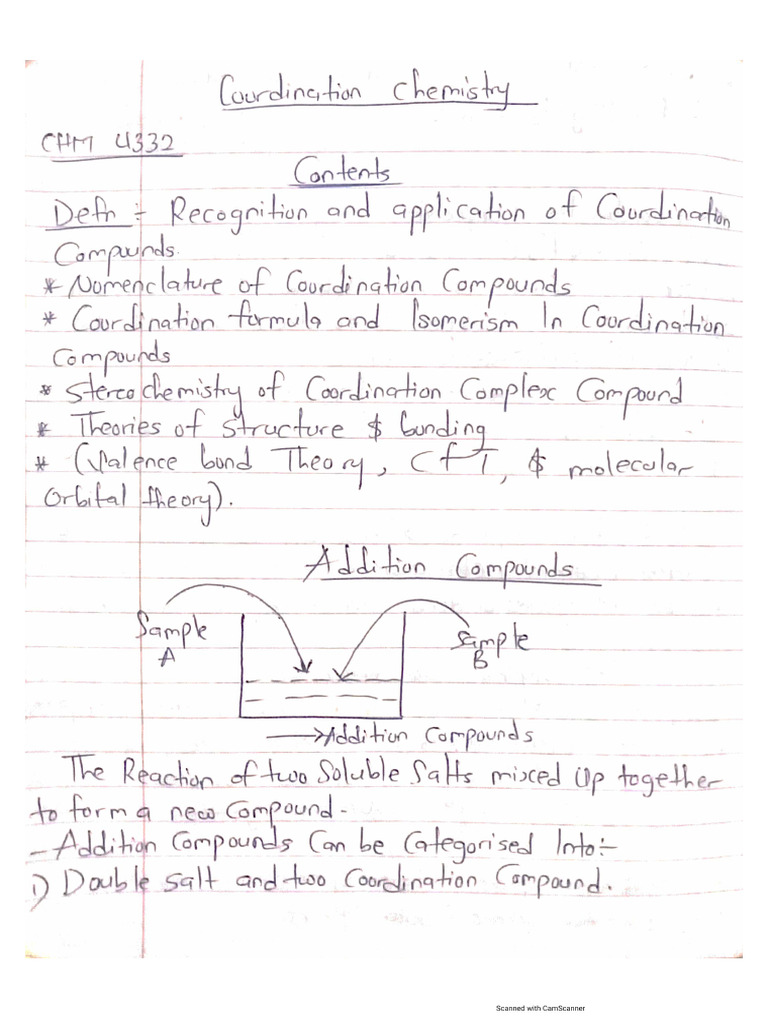 Coordination Chemistry
CHM 4332
Contents
Defn :- Recognition and application of Coordination
Compounds.
* Nomenclature of Coordination Compounds
* Coordination formula and Isomerism In Coordination
Compounds
* Stereochemistry of Coordination Complex Compound
* Theories of Structure & bonding
* (Valence bond Theory, CFT, & molecular
Orbital theory).
Addition Compounds
Sample
A
Sample
B
→Addition Compounds
The Reaction of two Soluble Salts mixed Up together
to form a new Compound-
- Addition Compounds Can be Categorised Into:-
1) Double Salt and two Coordination Compound.
Scanned with CamScanner